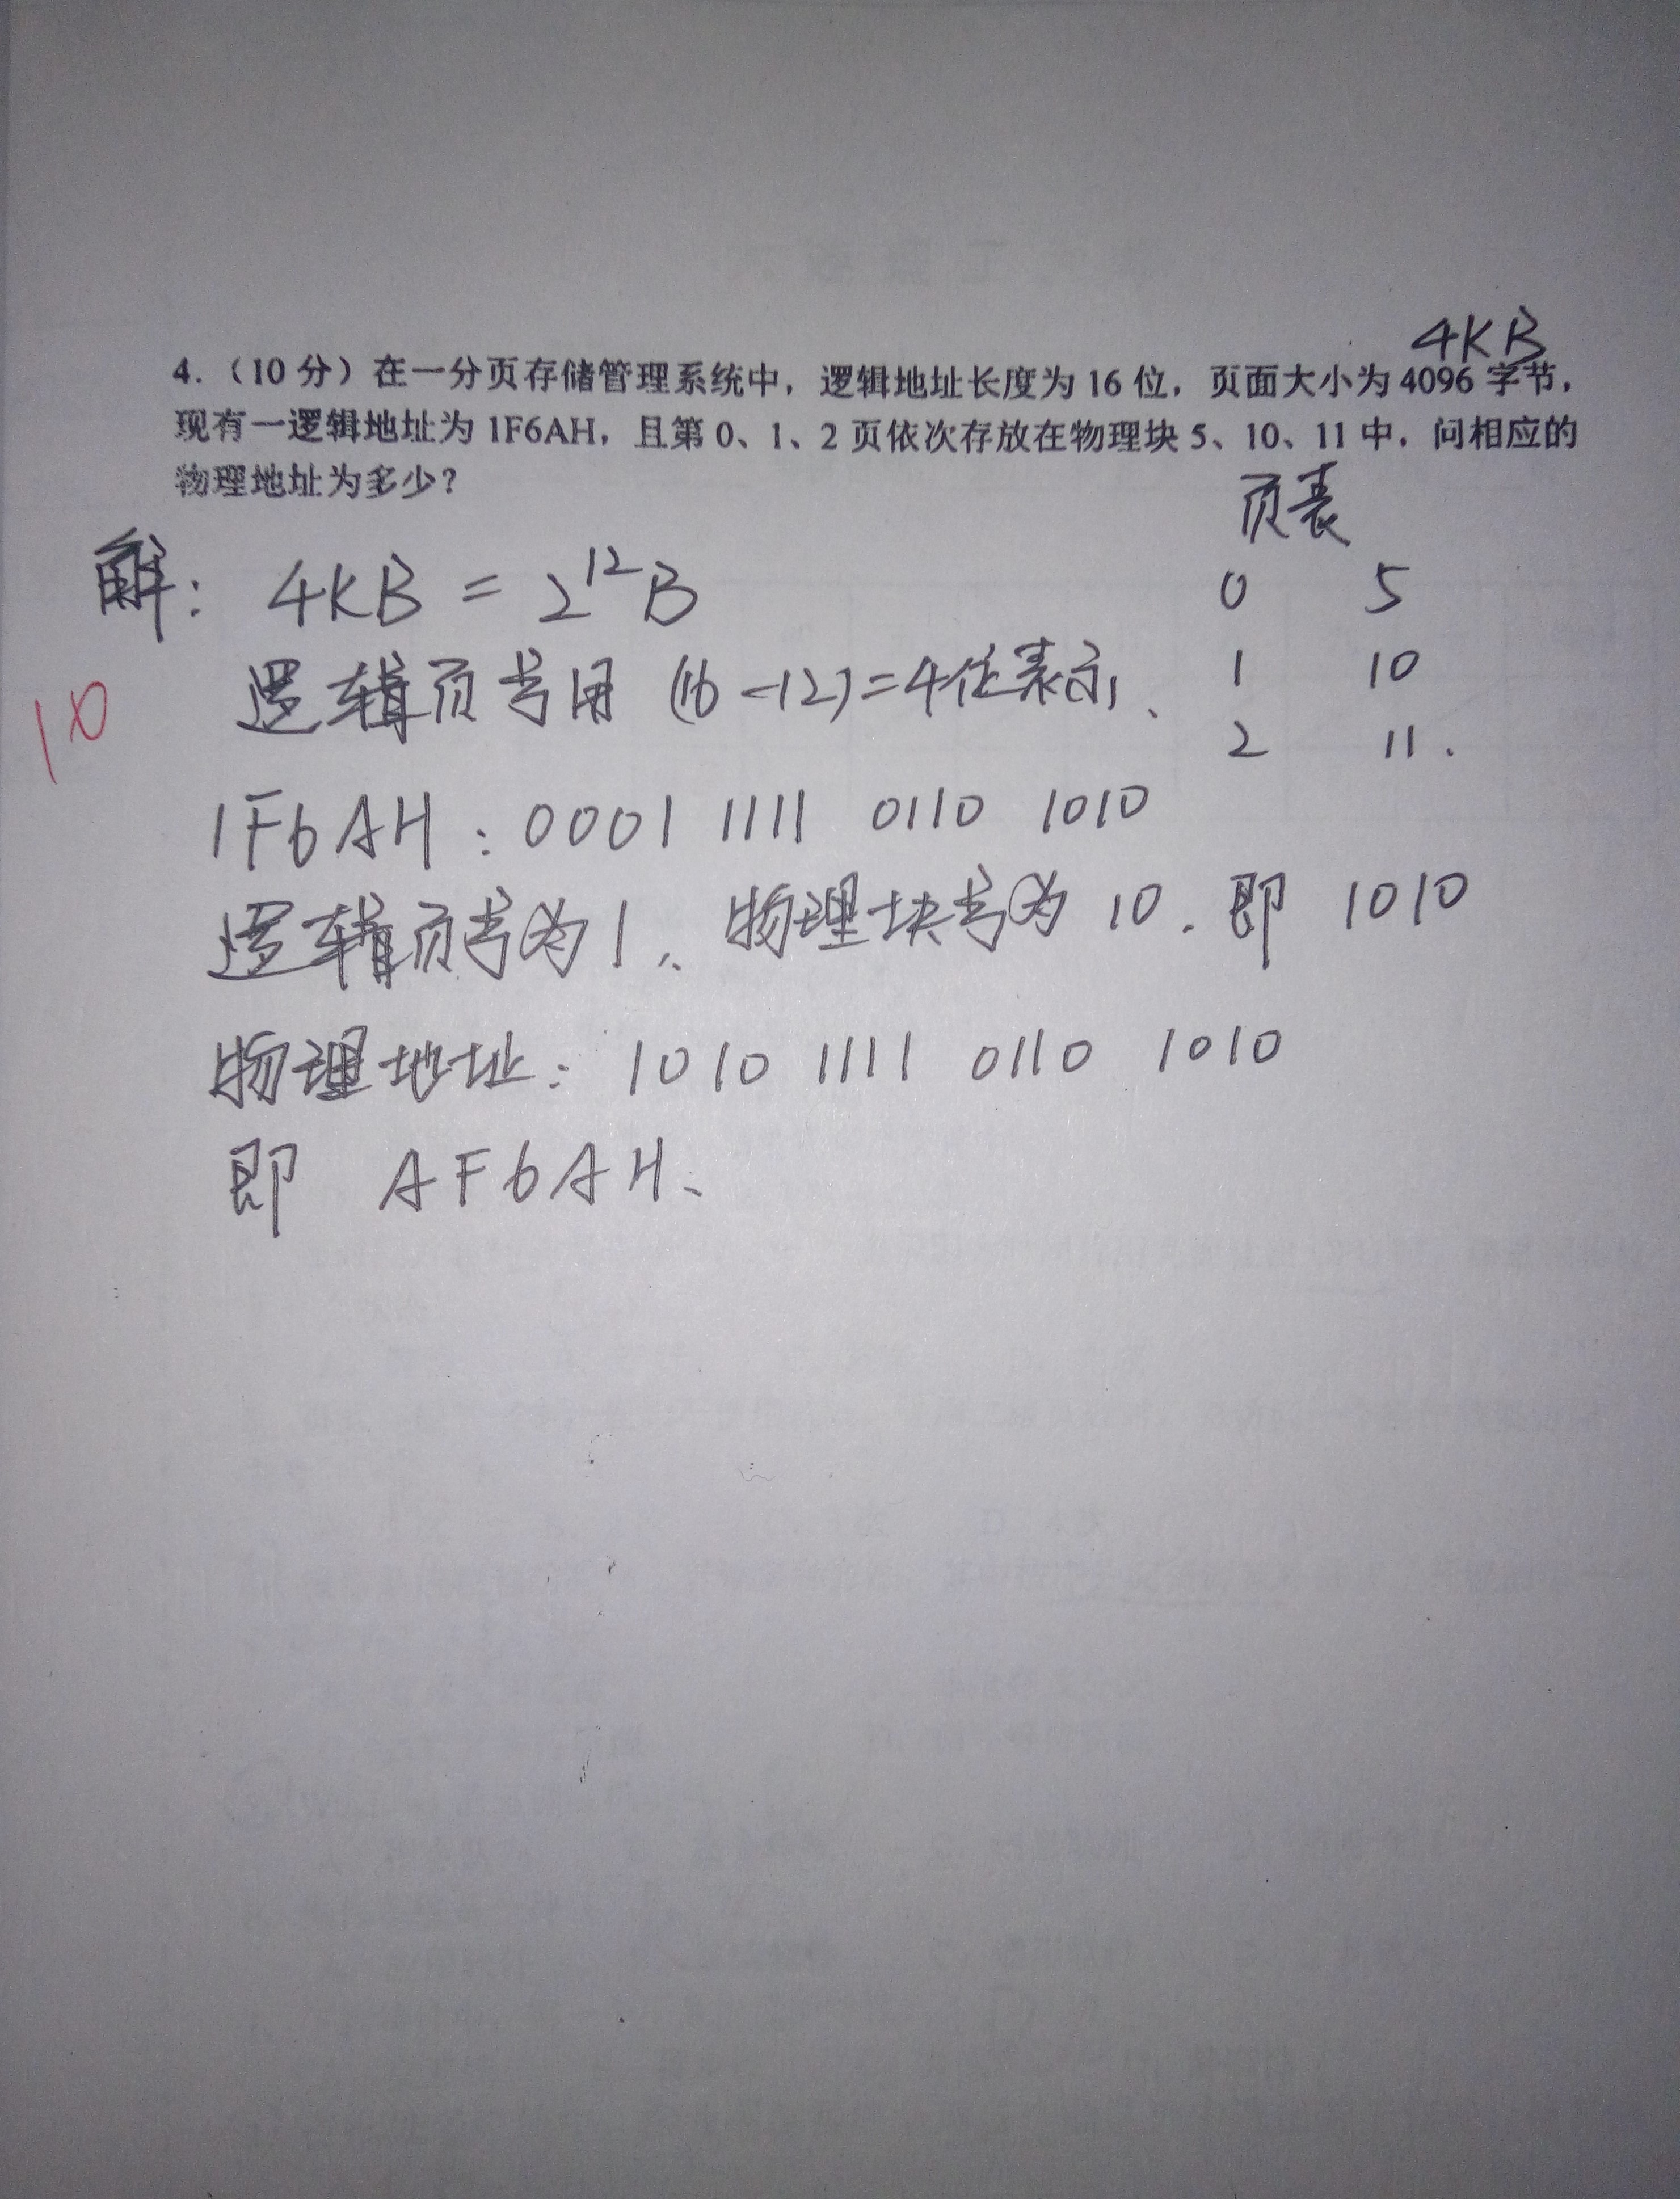 4KB
4.（10 分）在一分页存储管理系统中，逻辑地址长度为 16 位，页面大小为 4096 字节，
现有一逻辑地址为 1F6AH，且第 0、1、2 页依次存放在物理块 5、10、11 中，问相应的
物理地址为多少？
页表
0 5
1 10
2 11.
解：4KB = 2¹²B
逻辑页号用 (16-12)=4位表示、
10
1F6AH：0001 1111 0110 1010
逻辑页号为1、物理块号为 10. 即 1010
物理地址：1010 1111 0110 1010
即 AF6AH、